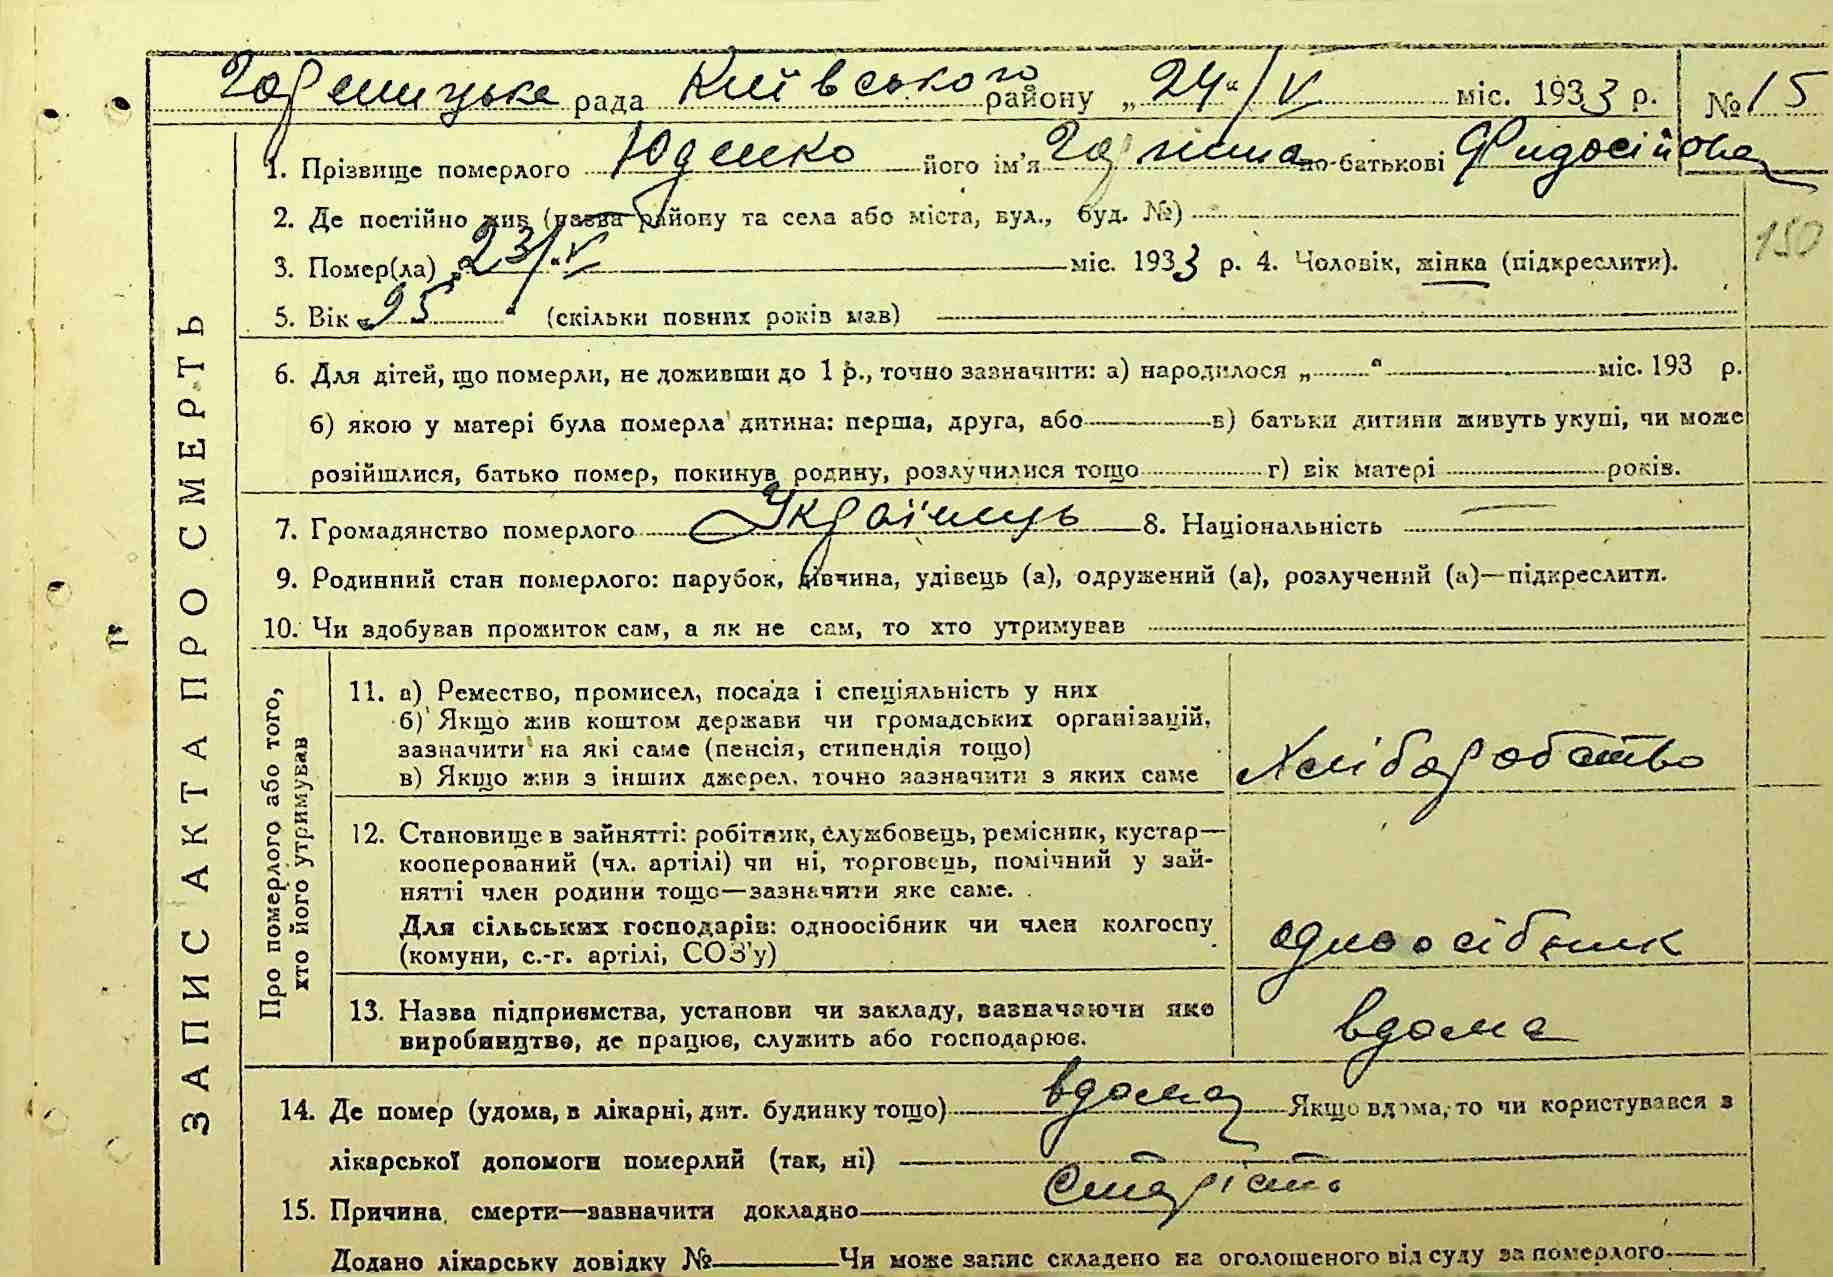 Гореницька рада Київського району „24“/V міс. 1933 р. № 15
1. Прізвище померлого Юденко його ім'я Горпина по-батькові Фидосійова
2. Де постійно жив (назва району та села або міста, вул., буд. №)
150
3. Помер(ла) „23/“V міс. 1933 р. 4. Чоловік, жінка (підкреслити).
5. Вік „95“ (скільки повних років мав)
6. Для дітей, що померли, не доживши до 1 р., точно зазначити: а) народилося „ “ міс. 193 р.
б) якою у матері була померла дитина: перша, друга, або в) батьки дитини живуть укупі, чи може
розійшлися, батько помер, покинув родину, розлучилися тощо г) вік матері років.
7. Громадянство померлого Українець 8. Національність —
9. Родинний стан померлого: парубок, дівчина, удівець (а), одружений (а), розлучений (а)—підкреслити.
10. Чи здобував прожиток сам, а як не сам, то хто утримував
ЗАПИС АКТА ПРО СМЕРТЬ
Про померлого або того,
хто його утримував
11. а) Ремество, промисел, посада і спеціяльність у них
б) Якщо жив коштом держави чи громадських організацій,
зазначити на які саме (пенсія, стипендія тощо)
в) Якщо жив з інших джерел, точно зазначити з яких саме
Хліборобство
12. Становище в зайнятті: робітник, службовець, ремісник, кустар—
кооперований (чл. артілі) чи ні, торговець, помічний у зай-
нятті член родини тощо—зазначити яке саме.
Для сільських господарів: одноосібник чи член колгоспу
(комуни, с.-г. артілі, СОЗ'у)
одноосібник
13. Назва підприємства, установи чи закладу, зазначаючи яке
виробництво, де працює, служить або господарює.
вдома
14. Де помер (удома, в лікарні, дит. будинку тощо) вдома Якщо вдома, то чи користувався з
лікарської допомоги померлий (так, ні)
15. Причина смерти—зазначити докладно старість
Додано лікарську довідку № Чи може запис складено на оголошеного від суду за померлого